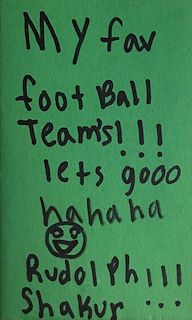 My fav
football
Team's!!!
lets gooo
hahaha
Rudolph!!!
Shakur ...